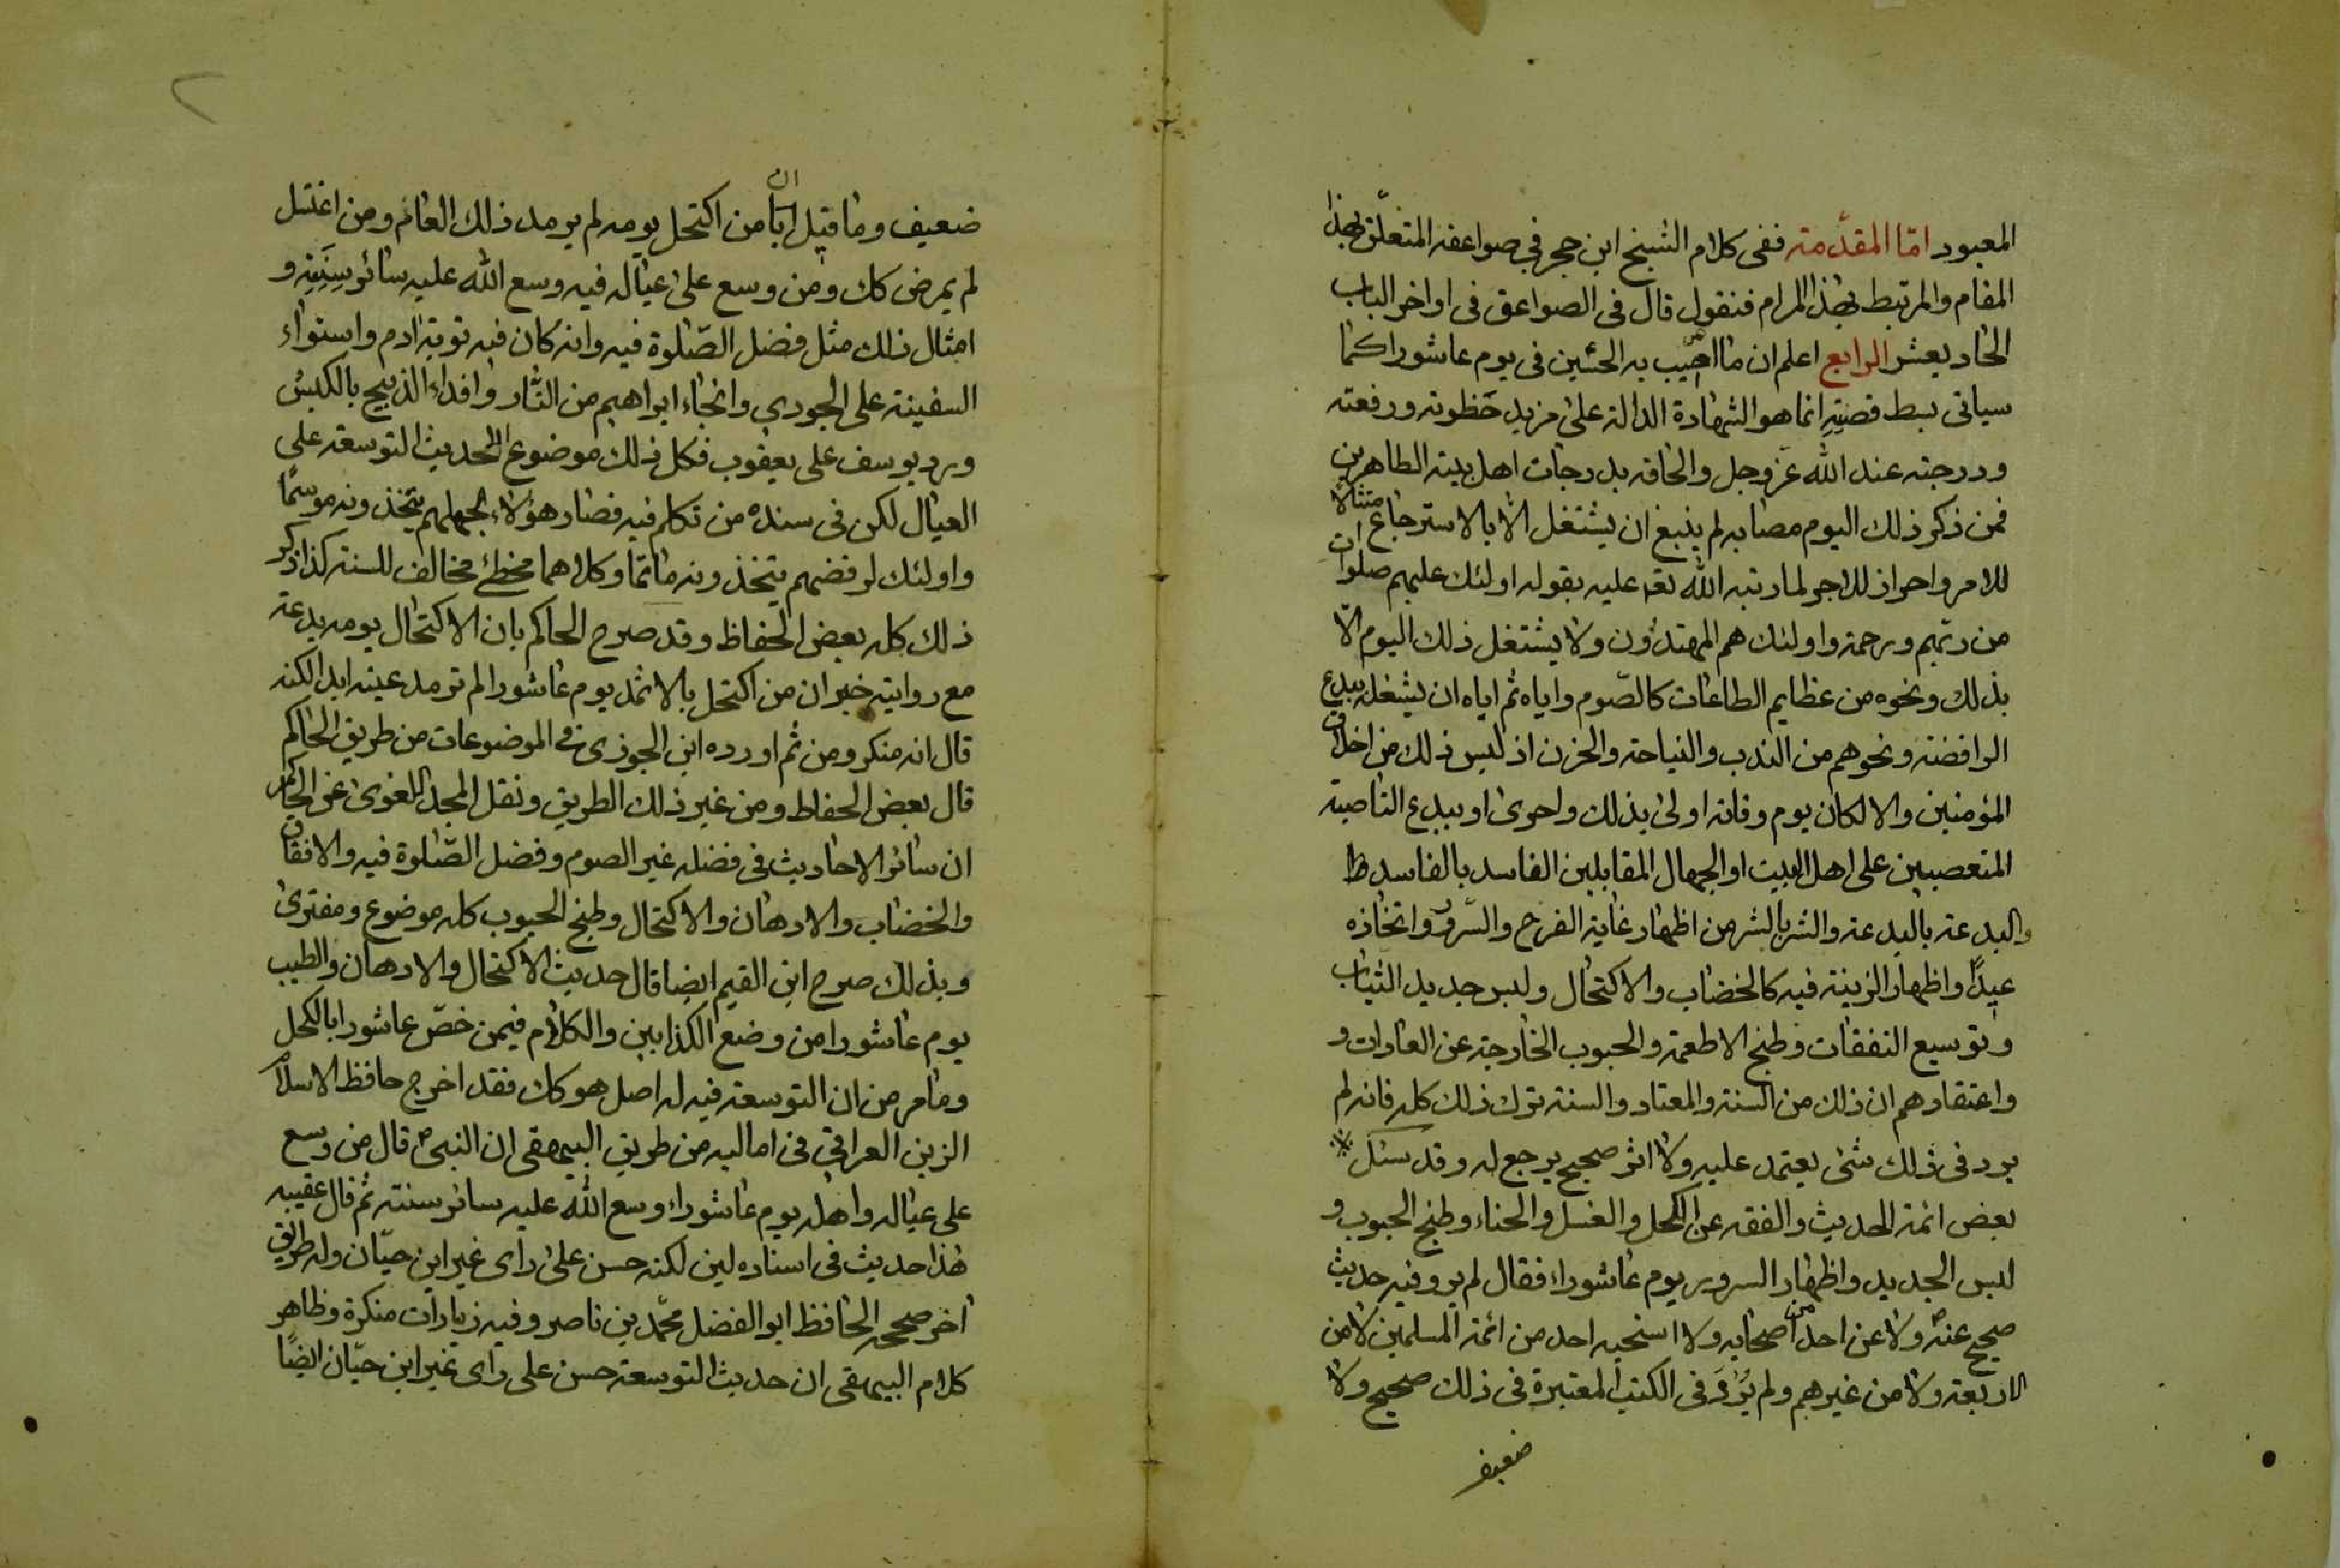 المعبود امّا المقدّمته ففى كلام الشيخ ابن حجر في صواعقه المتعلّق بهذا
المقام والمرتبط بهذا المرام فنقول قال فى الصواعق فى اواخر الباب
الحاد يعشر الرابع اعلم ان ما اصيب به الحسين فى يوم عاشورا كما
سياتى بسط قصته انما هو الشهادة الدالة على مزيد حَظوته ورفعته
ودرجته عند الله عزّ وجل والحاقه بدرجات اهل بيته الطاهرين
فمن ذكر ذلك اليوم مصابه لم ينبغ ان يشتغل الّا بالاسترجاع متثالا
للامر واحراز للاجر لما رتبه الله تعه عليه بقوله اولئك عليهم صلوات
من ربّهم ورحمة واولئك هم المهتدون ولا يشتغل ذلك اليوم الّا
بذلك ونحوه من عظايم الطاعات كالصّوم واياه ثم اياه ان يشغله ببدع
الرافضة ونحوهم من الندب والنياحة والحزن اذ ليس ذلك من اخلاق
المؤمنين والا لكان يوم وفاته اولى بذلك واحرى او ببدع الناصبة
المتعصبين على اهل البيت او الجهال المقابلين الفاسد بالفاسد ط
والبدعة بالبدعة والشر بالشر من اظهار غاية الفرح والسّرور واتخاذه
عيدًا واظهار الزينة فيه كالخضاب والاكتحال ولبس جديد الثياب
وتوسيع النفقات وطبخ الاطعمة والحبوب الخارجة عن العادات و
واعتقادهم ان ذلك من السنة والمعتاد والسنة ترك ذلك كله فانه لم
يرد فى ذلك شئ يعتمد عليه ولا اثر صحيح يرجع له وقد سئل
بعض ائمة الحديث والفقه عن الكحل والغسل والحناء وطبخ الحبوب و
لبس الجديد واظهار السرور يوم عاشوراء فقال لم يرو فيه حديث
صحيح عنه ص ولا عن احد من اصحابه ولا استحبه احد من ائمة المسلمين لا من
الاربعة ولا من غيرهم ولم يُروَ فى الكتب المعتبرة فى ذلك صحيح ولا
ضعيف
ضعيف وما قيل ان من اكتحل يومه لم يرمد ذلك العام ومن اغتسل
لم يمرض كك ومن وسع على عياله فيه وسع الله عليه سائر سنته و
امثال ذلك مثل فضل الصّلوة فيه وانه كان فيه توبة ادم واستواء
السفينة على الجودي وانجاء ابراهيم من النّار وافداء الذبيح بالكبش
ورد يوسف على يعقوب فكل ذلك موضوع الّا حديث التوسعة على
العيال لكن فى سنده من تكلم فيه فصار هؤلاء لجهلهم يتخذونه موسمًا
واولئك لرفضهم يتخذونه ماتمًا وكلاهما مخطئ مخالف للسنة كذا ذكر
ذلك كله بعض الحفاظ وقد صرح الحاكم بان الاكتحال يومه بدعة
مع روايته خبر ان من اكتحل بالاثمد يوم عاشورا لم ترمد عينه ابدا لكنه
قال انه منكر ومن ثم اورده ابن الجوزى فى الموضوعات من طريق الحاكم
قال بعض الحفاط ومن غير ذلك الطريق ونقل المجد اللغوى عن الحاكم
ان سائر الاحاديث فى فضله غير الصوم وفضل الصّلوة فيه والانفاق
والخضاب والادهان والاكتحال وطبخ الحبوب كله موضوع ومفترى
وبذلك صرح ابن القيم ايضا قال حديث الاكتحال والادهان والطيب
يوم عاشورا من وضع الكذابين والكلام فيمن خصّ عاشورا بالكحل
وما مر من ان التوسعة فيه له اصل هو كك فقد اخرج حافظ الاسلام
الزين العراقي فى اماليه من طريق البيهقى ان النبى ص قال من وسع
على عياله واهله يوم عاشوراء وسع الله عليه سائر سنته ثم قال عقيبه
هذا حديث فى اسناده لين لكنه حسن على راى غير ابن حبّان وله طريق
اخر صححه الحافظ ابو الفضل محمّد بن ناصر وفيه زيادات منكرة وظاهر
كلام البيهقى ان حديث التوسعة حسن على راى غير ابن حبّان ايضًا